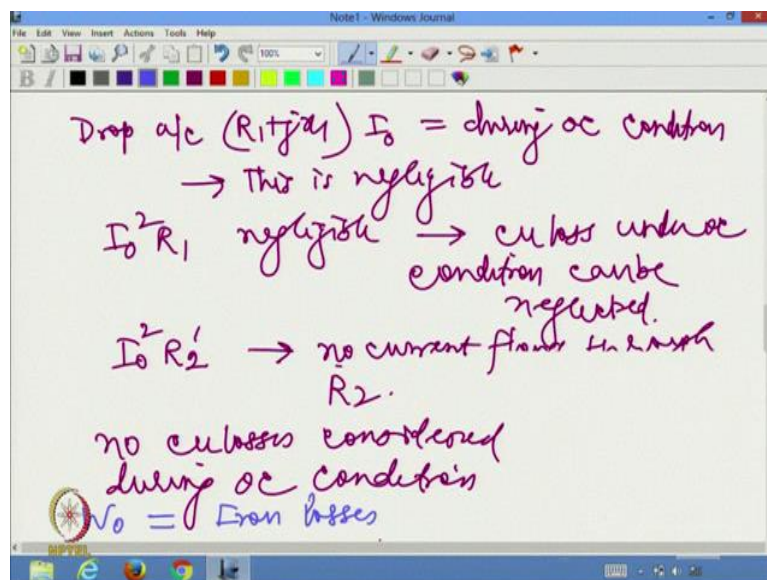 Note1 - Windows Journal
File Edit View Insert Actions Tools Help
100%
B I
Drop a/c (R₁+jx₁) I₀ = during oc condition
→ This is negligible
I₀²R₁ negligible → cu loss under oc
condition can be
neglected.
I₀²R₂' → no current flows through
R₂.
no cu losses considered
during oc condition
W₀ = Iron losses
NPTEL